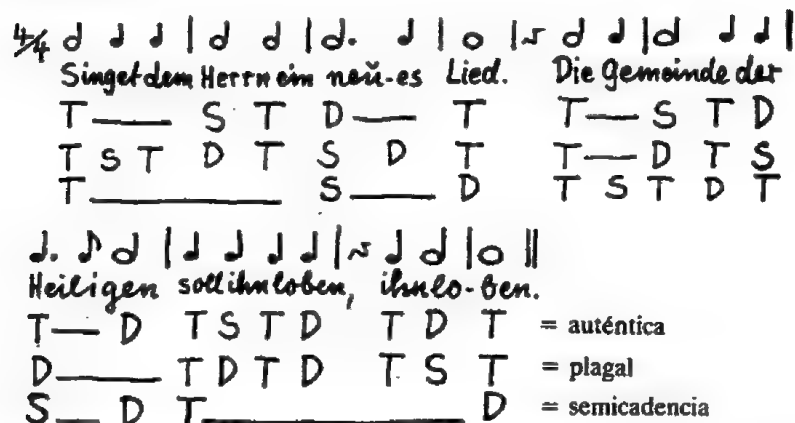 4/4
Singet dem Herrn ein neŭ-es Lied. Die Gemeinde der
T — S T D — T T — S T D
T S T D T S D T T — D T S
T — S — D T S T D T
Heiligen soll ihn loben, ihn lo-ben.
T — D T S T D T D T = auténtica
D — T D T D T S T = plagal
S — D T — D = semicadencia